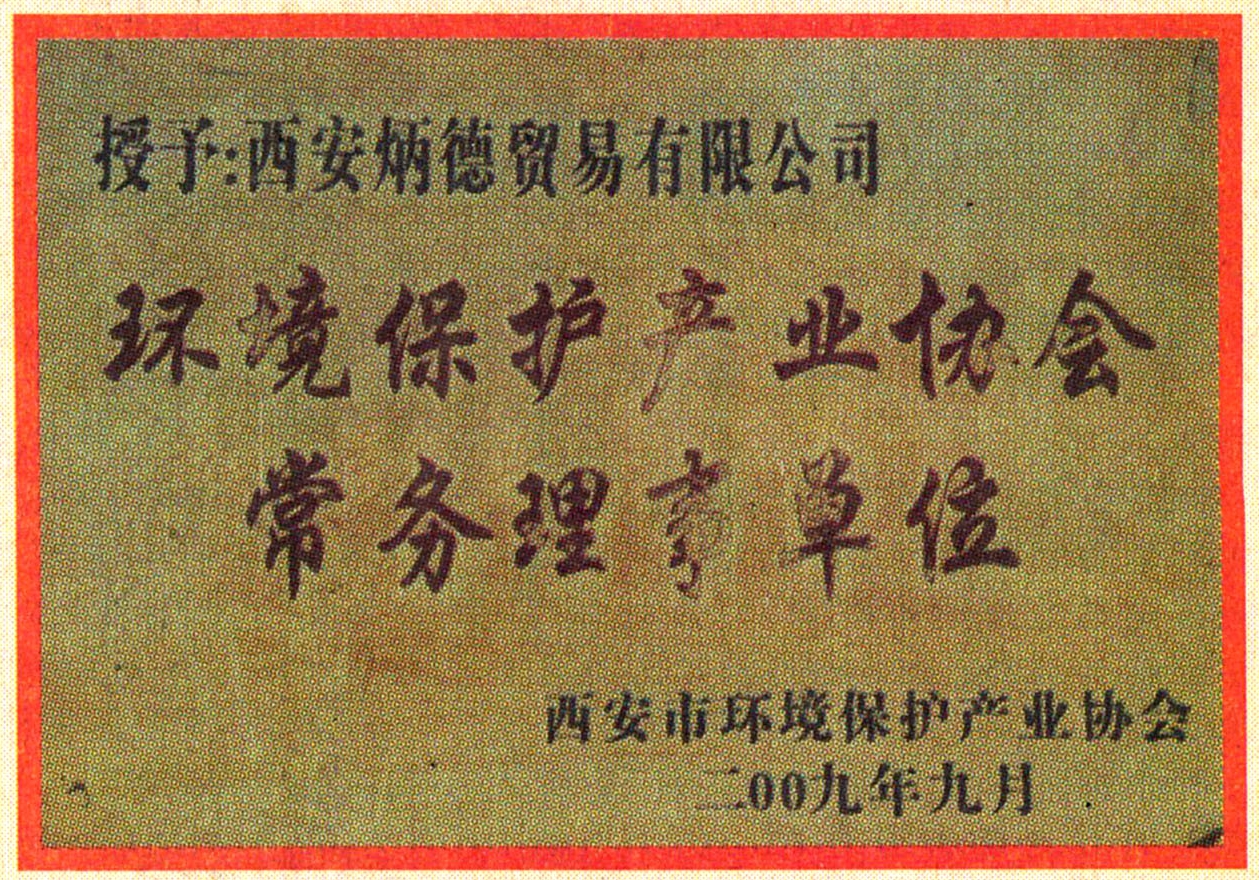 授予:西安炳德贸易有限公司
环境保护产业协会
常务理事单位
西安市环境保护产业协会
二00九年九月